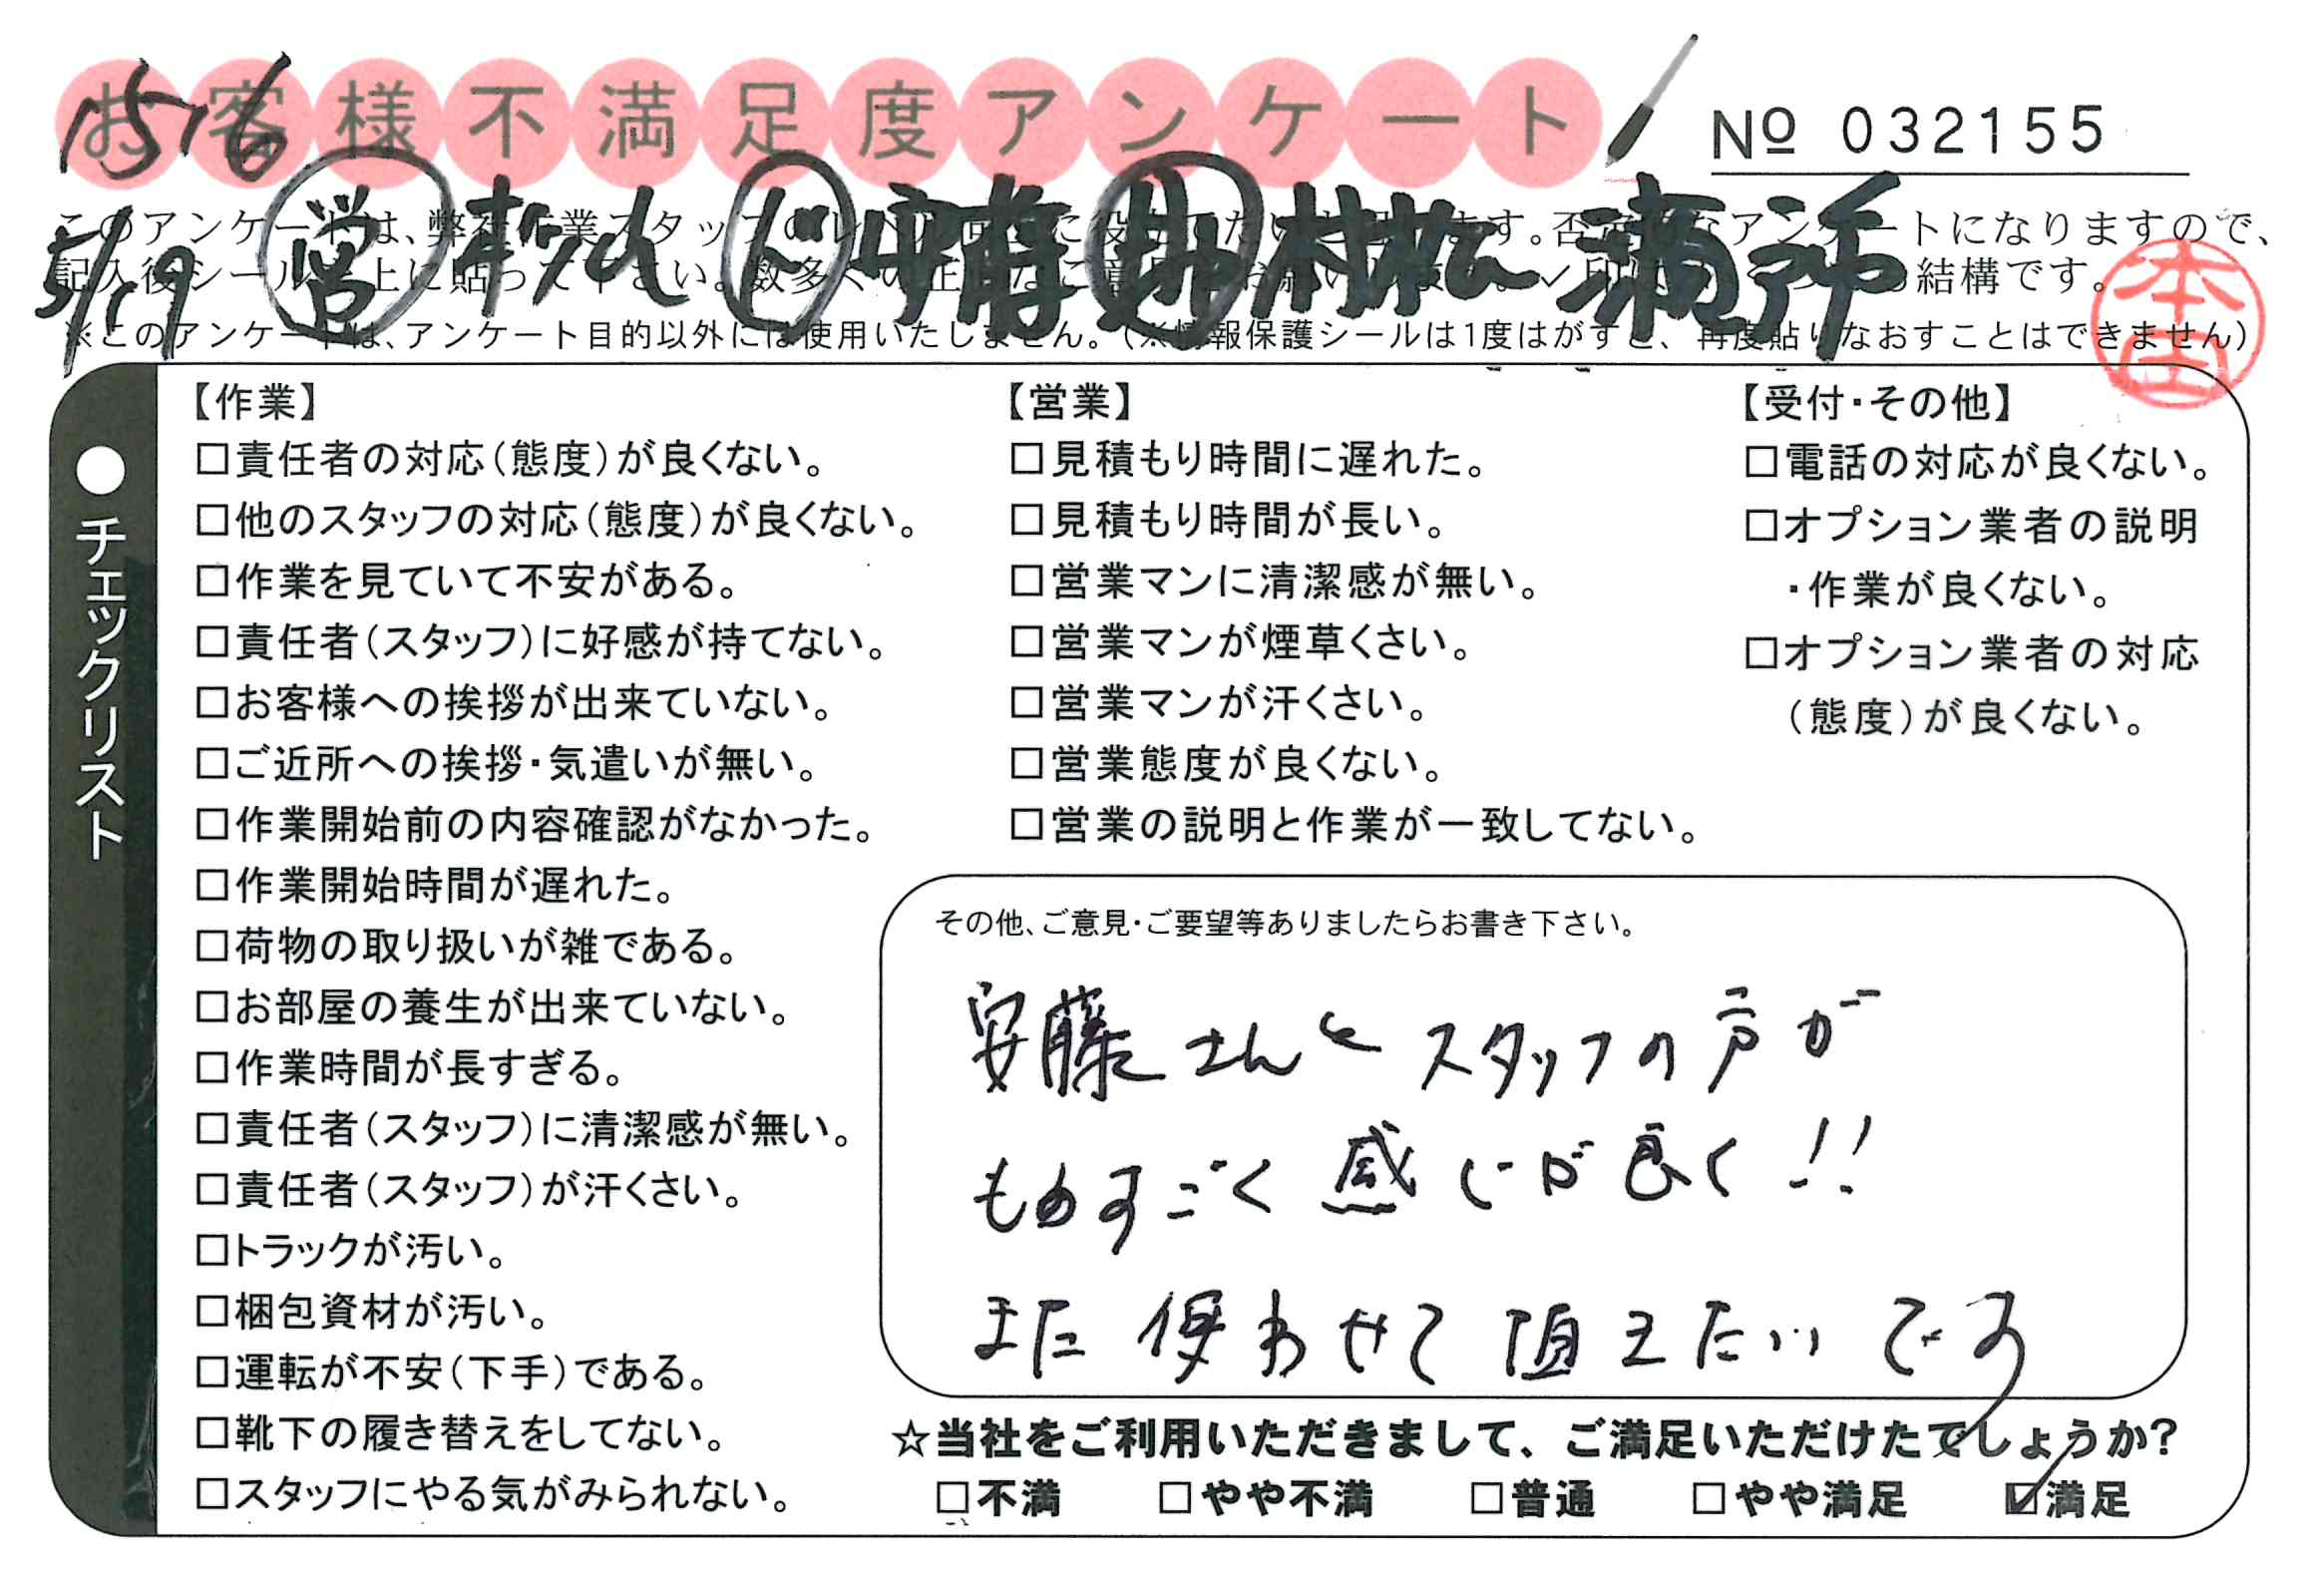 お客様不満足度アンケート
1516
No 032155
5/19 営 ド 助 村松
このアンケートは、弊社作業スタッフのレベル なアンケートになりますので、
記入後シール 上に貼って下さい。数多くの正直なご意見 お願い 結構です。
※このアンケートは、アンケート目的以外には使用いたしません。(※情報保護シールは1度はがすと、再度貼りなおすことはできません)
本田
●チェックリスト
【作業】
□責任者の対応(態度)が良くない。
□他のスタッフの対応(態度)が良くない。
□作業を見ていて不安がある。
□責任者(スタッフ)に好感が持てない。
□お客様への挨拶が出来ていない。
□ご近所への挨拶・気遣いが無い。
□作業開始前の内容確認がなかった。
□作業開始時間が遅れた。
□荷物の取り扱いが雑である。
□お部屋の養生が出来ていない。
□作業時間が長すぎる。
□責任者(スタッフ)に清潔感が無い。
□責任者(スタッフ)が汗くさい。
□トラックが汚い。
□梱包資材が汚い。
□運転が不安(下手)である。
□靴下の履き替えをしてない。
□スタッフにやる気がみられない。
【営業】
□見積もり時間に遅れた。
□見積もり時間が長い。
□営業マンに清潔感が無い。
□営業マンが煙草くさい。
□営業マンが汗くさい。
□営業態度が良くない。
□営業の説明と作業が一致してない。
【受付・その他】
□電話の対応が良くない。
□オプション業者の説明
・作業が良くない。
□オプション業者の対応
(態度)が良くない。
その他、ご意見・ご要望等ありましたらお書き下さい。
安藤さんとスタッフの方が
ものすごく感じが良く!!
また使わせて頂えたいです
☆当社をご利用いただきまして、ご満足いただけたでしょうか?
□不満 □やや不満 □普通 □やや満足 ☑満足